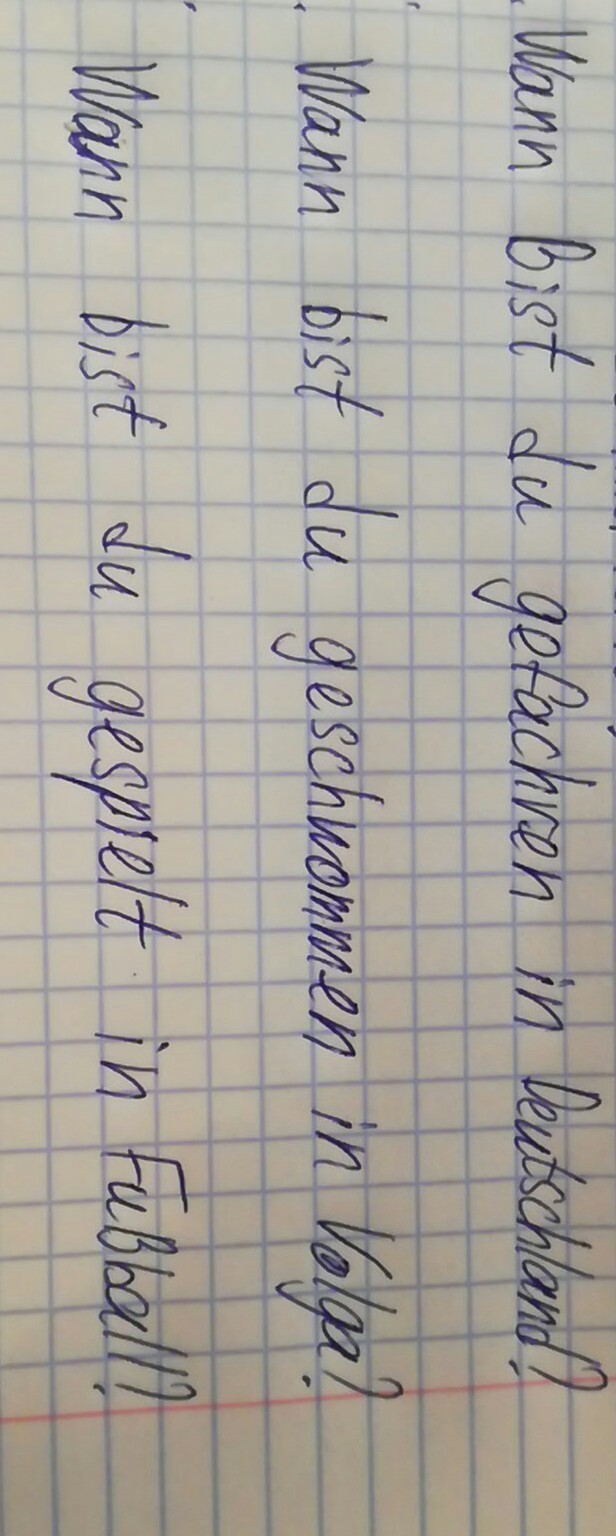 Wann bist du gefachren in Deutschland?
Wann bist du geschwommen in Volga?
Wann bist du gespielt in Fußball?